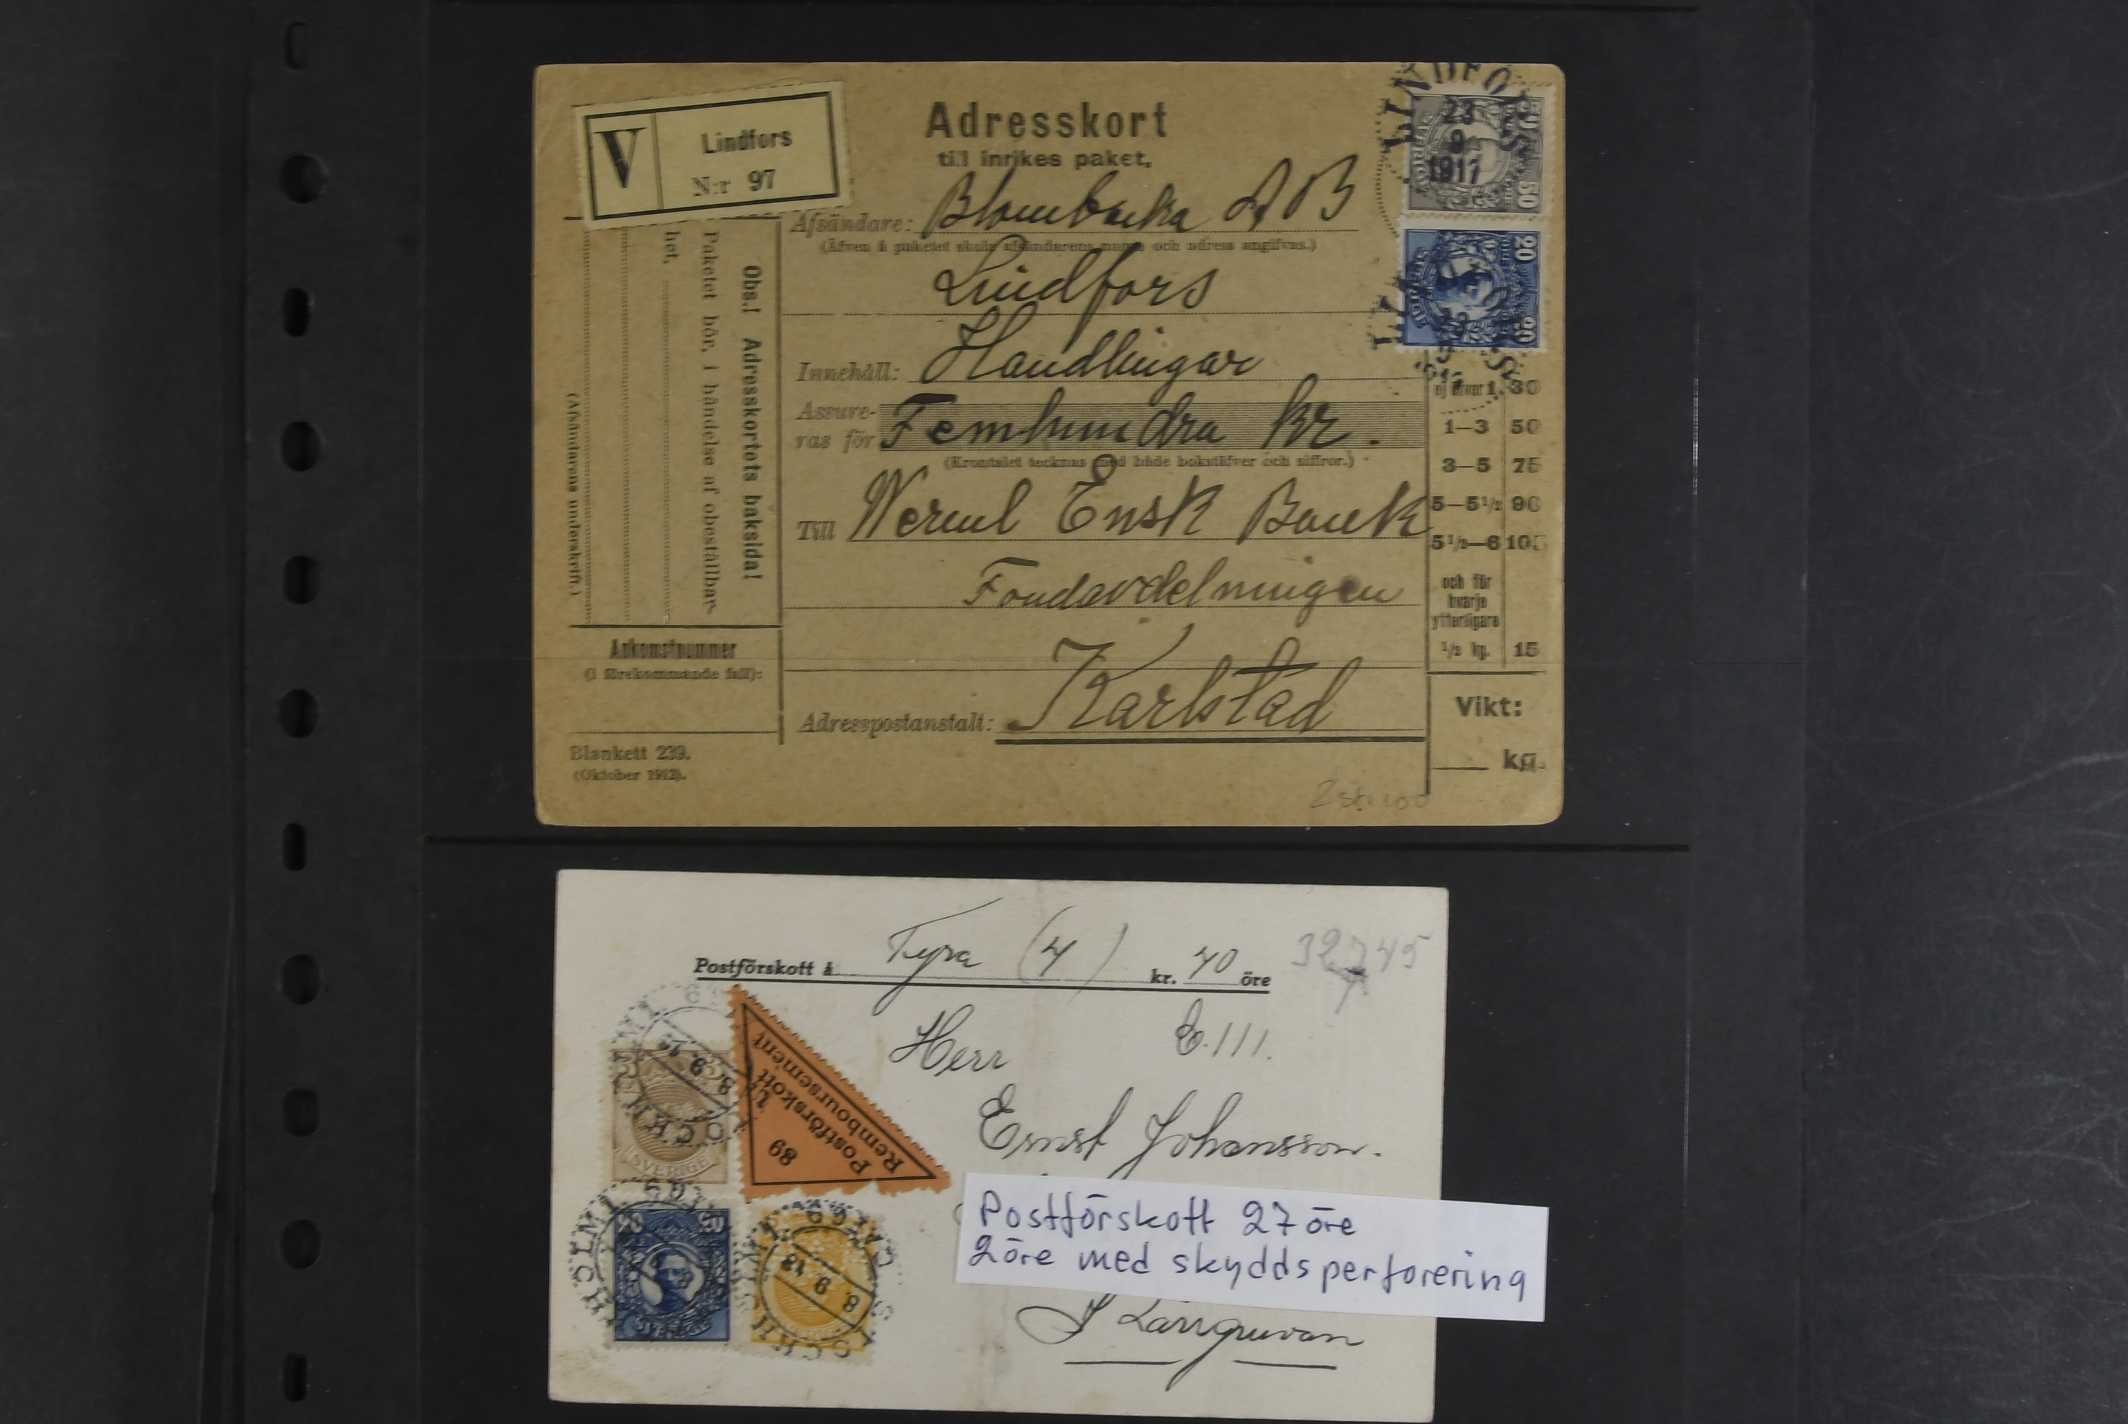 V Lindfors
N:r 97
Adresskort
till inrikes paket.
Afsändare: Blombacka AB
(Äfven å paketet skola afsändarens namn och adress angifvas.)
Lindfors
Innehåll: Handlingar
Assure-
ras för Femhundra kr.
(Krontalet tecknas med både bokstäfver och siffror.)
Till Werml Ensk Bank
Fondavdelningen
Adresspostanstalt: Karlstad
Obs.! Adresskortets baksida!
Paketet bör, i händelse af obeställbar-
het,
(Afsändarens underskrift.)
Ankomstnummer
(i förekommande fall):
Blankett 239.
(Oktober 1912).
LINDFORS
23
9
1911
50
20 20
ej öfver 1 30
1—3 50
3—5 75
5—5 1/2 90
5 1/2—6 105
och för
hvarje
ytterligare
1/2 kg. 15
Vikt:
kg.
Postförskott å Tyra (4) kr. 40 öre
32745
Herr E.111.
Ernst Johansson.
Postförskott 27 öre
2öre med skyddsperforering
Långruvan
89
Postförskott
Remboursement
SVERIGE
20 20
SVERIGE
STOCKHOLM 1
8. 9. 18